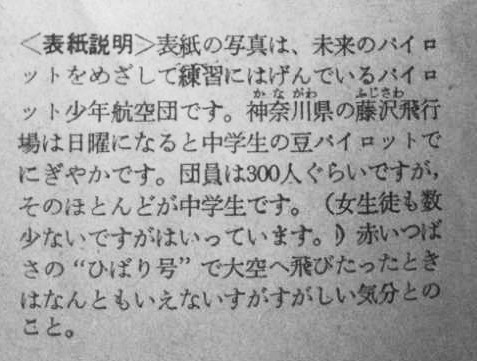 ＜表紙説明＞表紙の写真は、未来のパイロ
ットをめざして練習にはげんでいるパイロ
ット少年航空団です。神奈川県の藤沢飛行
場は日曜になると中学生の豆パイロットで
にぎやかです。団員は300人ぐらいですが，
そのほとんどが中学生です。（女生徒も数
少ないですがはいっています。）赤いつば
さの“ひばり号”で大空へ飛びたったとき
はなんともいえないすがすがしい気分との
こと。